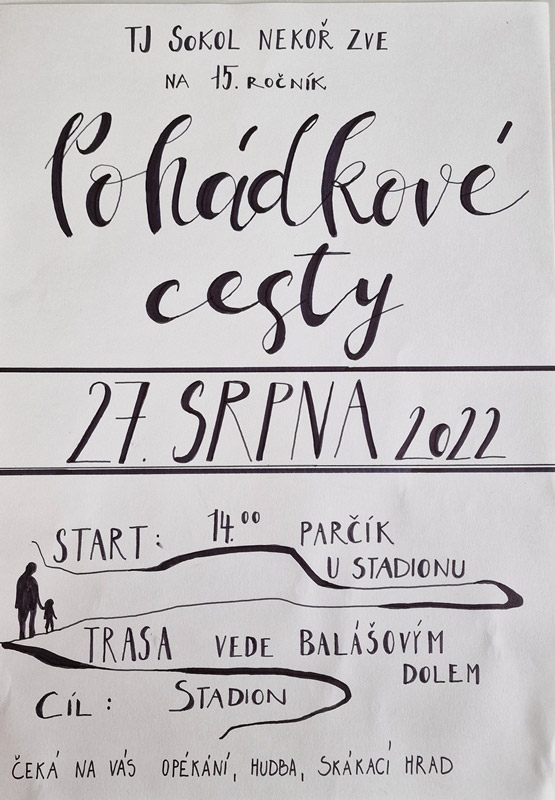 TJ SOKOL NEKOŘ ZVE
NA 15. ROČNÍK
Pohádkové
cesty
27. SRPNA 2022
START: 14.00 PARČÍK
U STADIONU
TRASA VEDE BALÁŠOVÝM
DOLEM
CÍL: STADION
ČEKÁ NA VÁS OPÉKÁNÍ, HUDBA, SKÁKACÍ HRAD